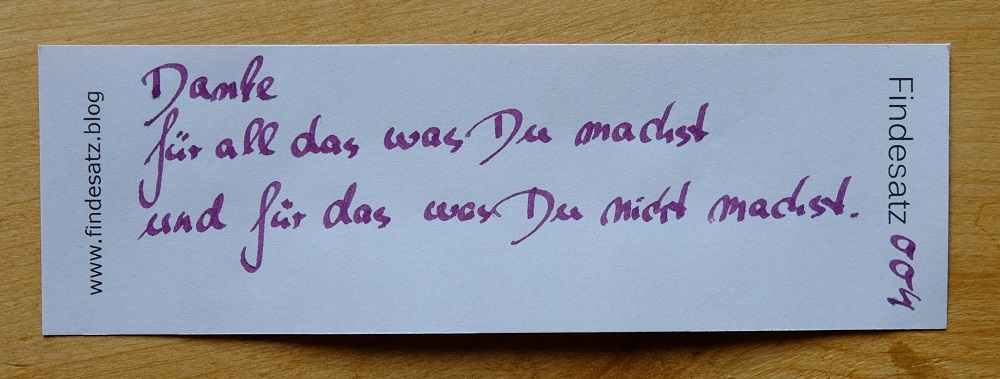 www.findesatz.blog
Danke
für all das was Du machst
und für das was Du nicht machst.
Findesatz 004